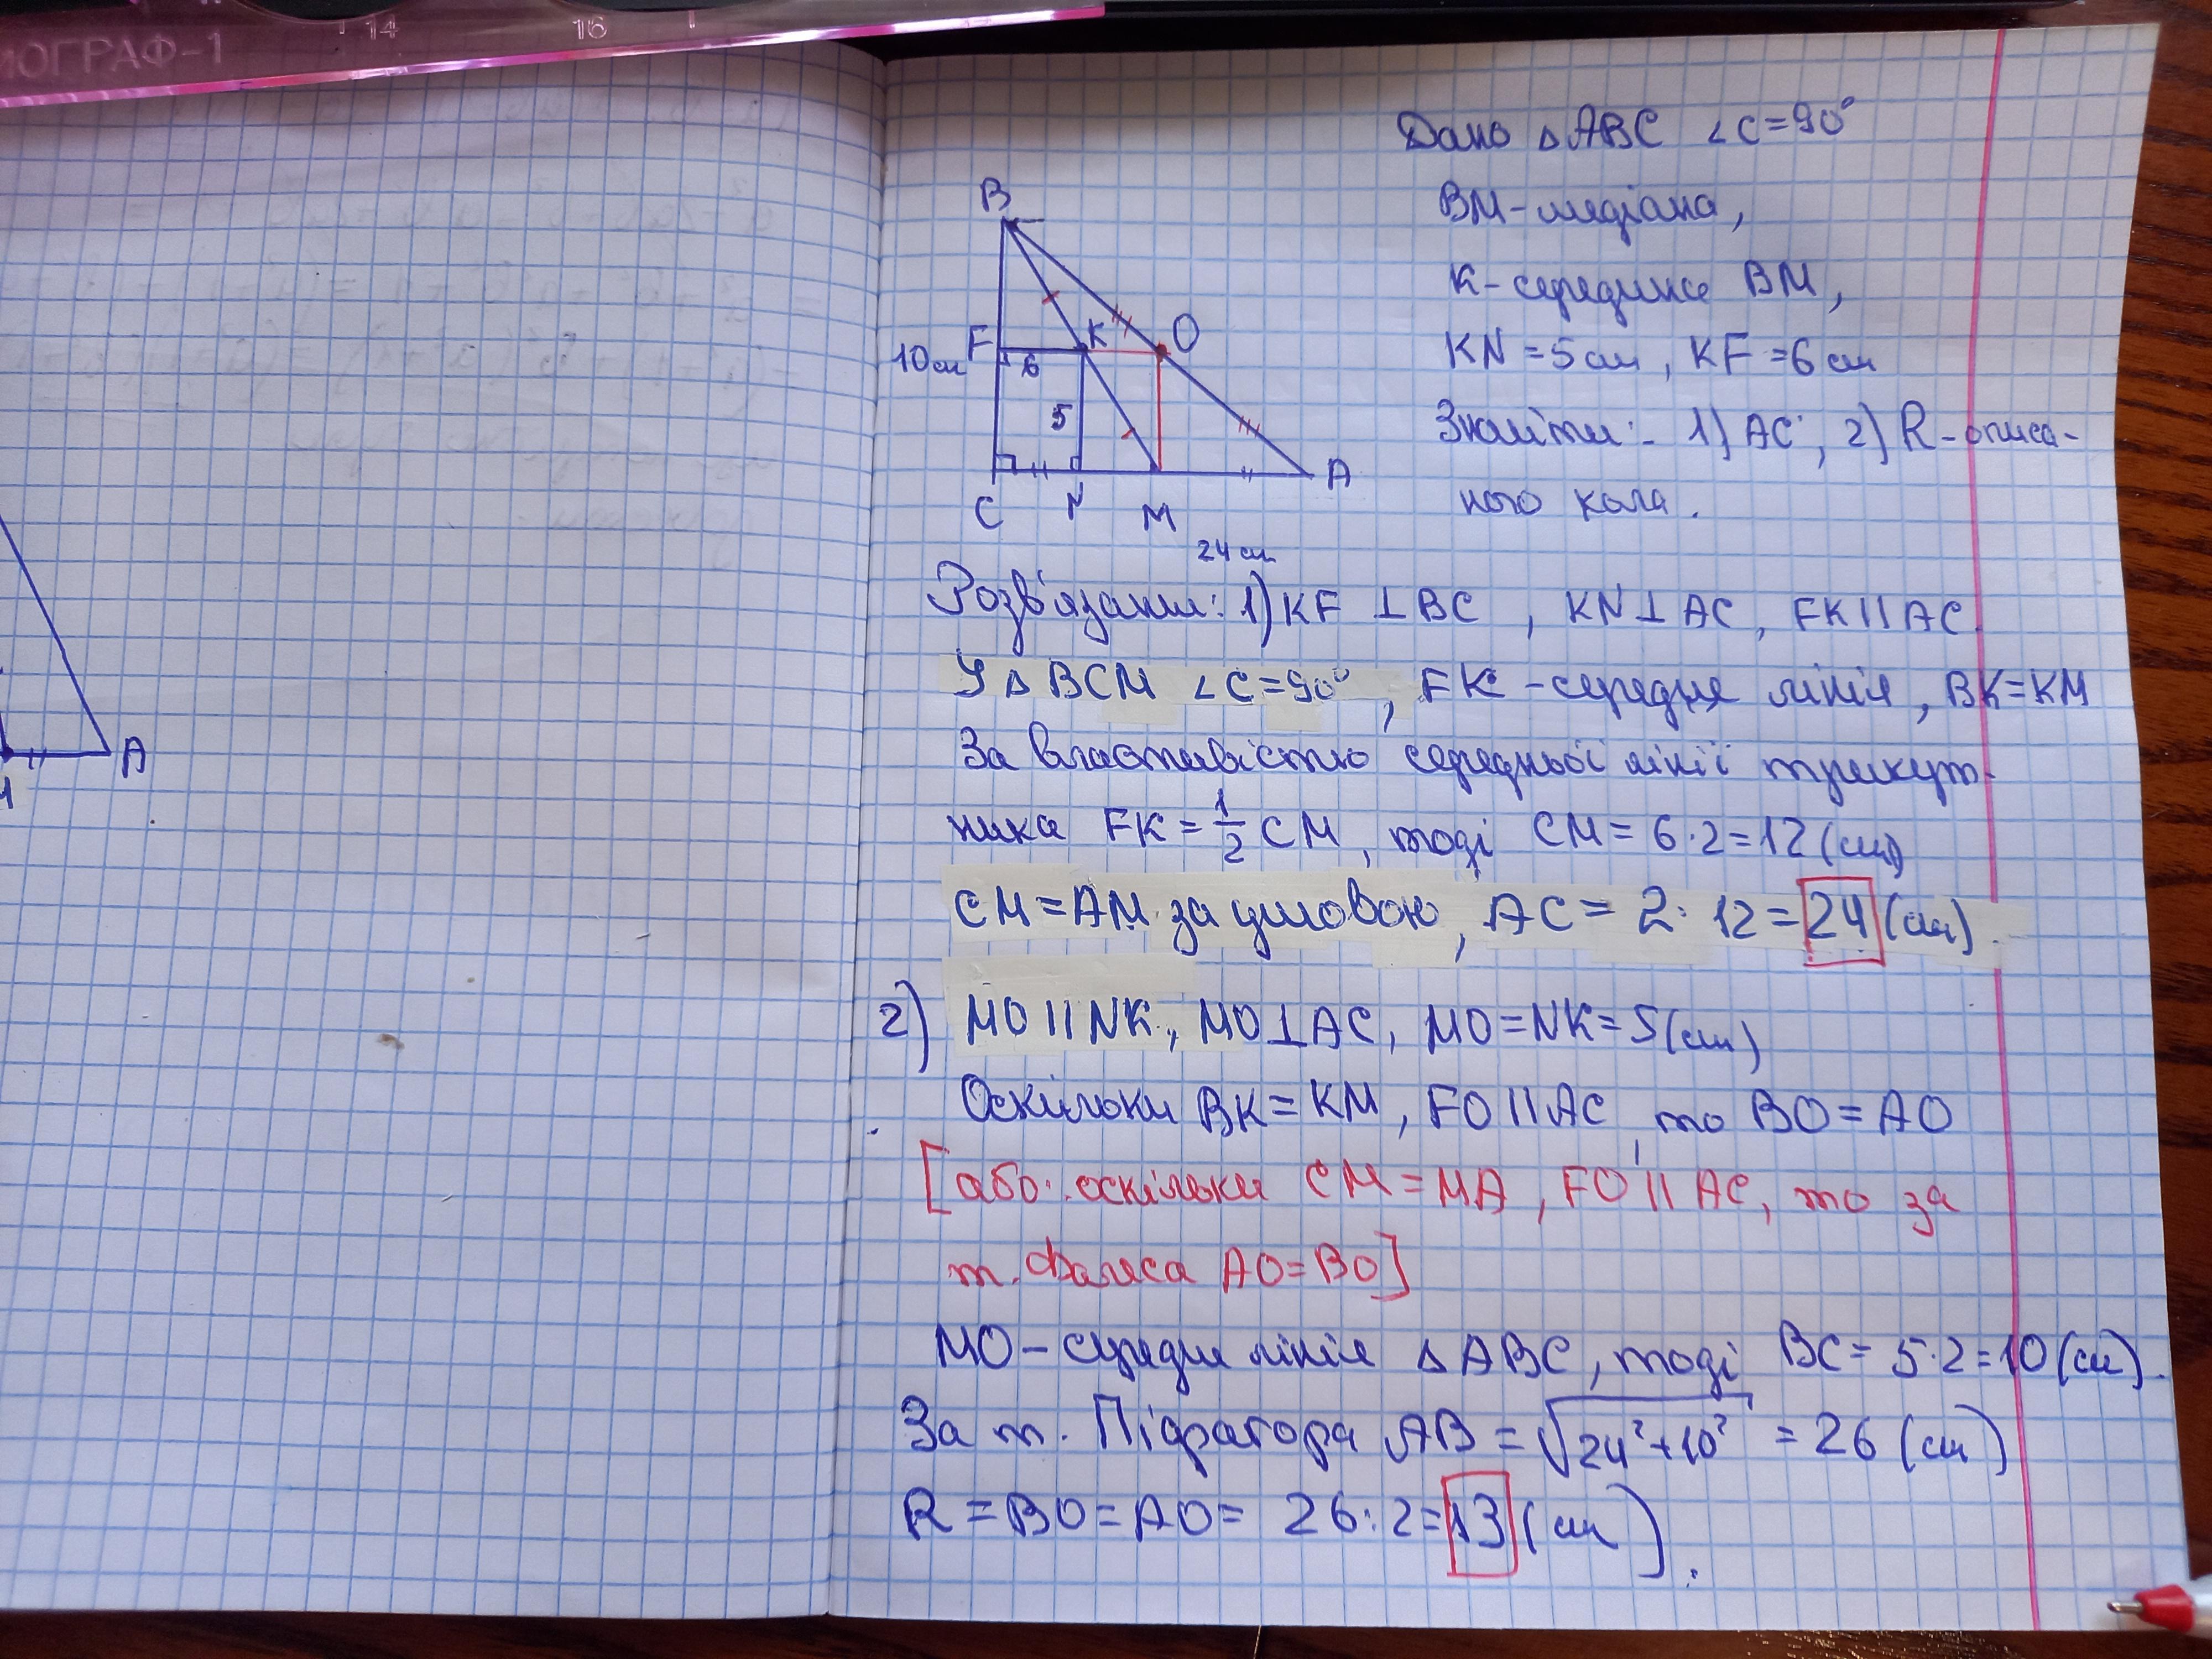 ИОГРАФ-1
14
16
Дано △ABC ∠C=90°
BM-медіана,
K-середина BM,
KN=5см, KF=6см
Знайти:- 1) AC, 2) R-описа-
ного кола.
B
F
K
O
10см
6
5
C
N
M
A
24 см
A
Розв'язання: 1) KF ⊥ BC , KN⊥AC, FK || AC.
У △ BCM ∠C=90°, FK -середня лінія, BK=KM
За властивістю середньої лінії трикут-
ника FK = 1/2 CM, тоді CM = 6·2=12(см)
CM=AM за умовою, AC = 2·12=24(см).
2) MO || NK, MO⊥AC, MO=NK=5(см)
Оскільки BK=KM, FO || AC, то BO=AO
[або: оскільки CM=MA, FO || AC, то за
т. Фалеса AO=BO]
MO-середня лінія △ABC, тоді BC=5·2=10(см).
За т. Піфагора AB=√24²+10² = 26 (см)
R = BO=AO= 26:2=13(см).